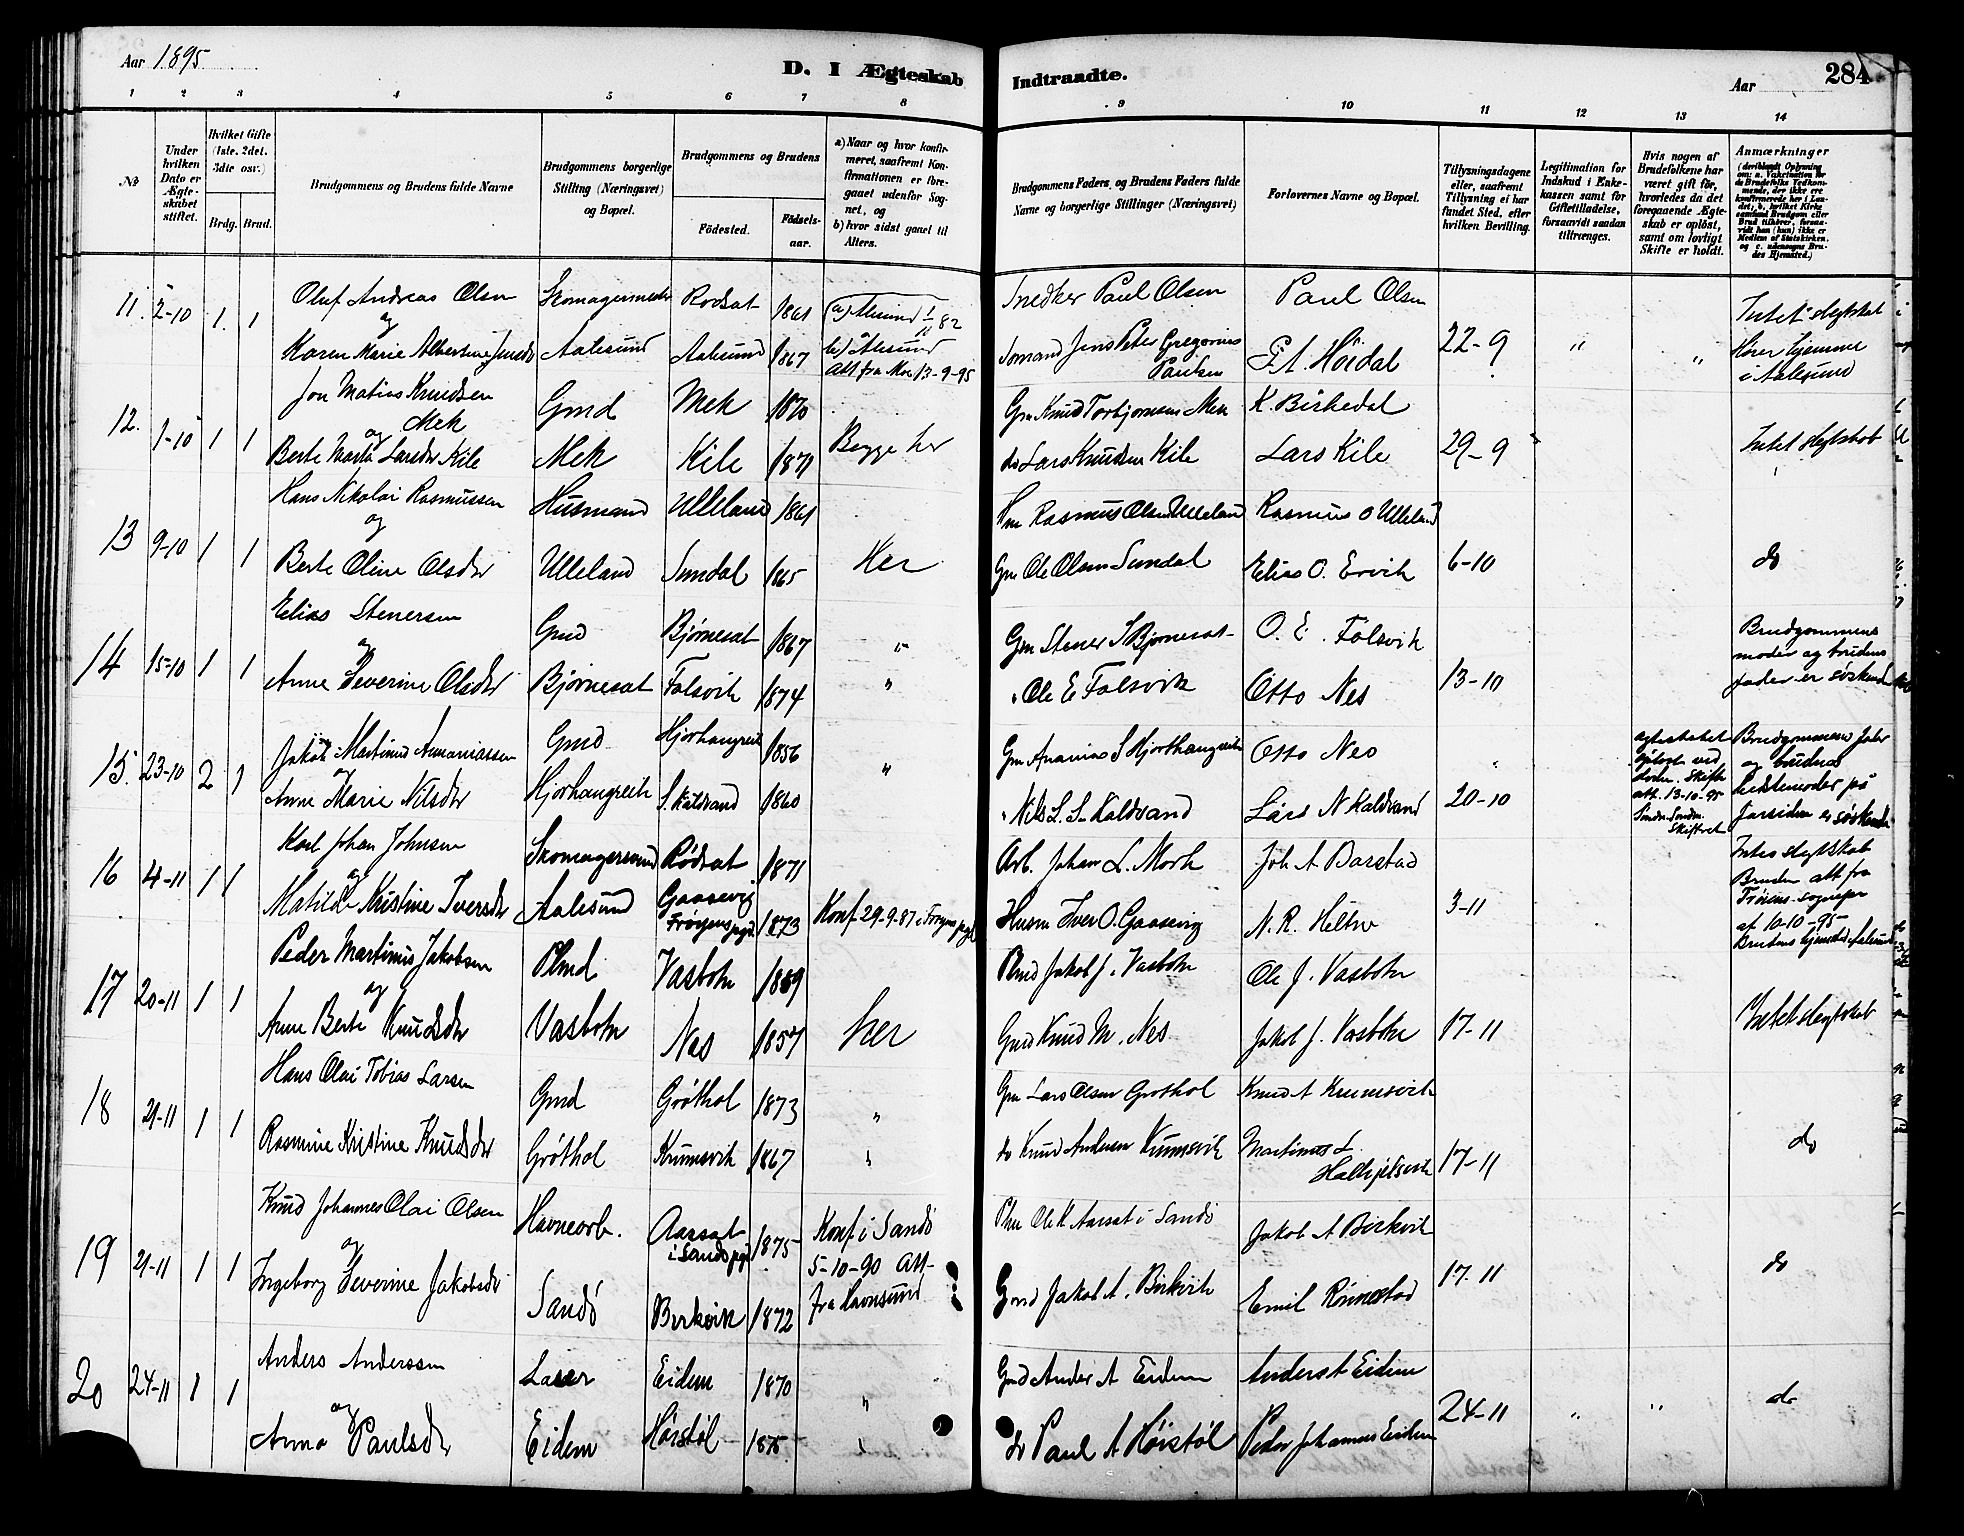 Aar 1895
D. I Ægteskab
Indtraadte.
Aar
284
1 2 3 4 5 6 7 8 9 10 11 12 13 14
No
Under hvilken Dato er Ægteskabet stiftet.
Hvilket Gifte (1ste. 2det. 3die osv.)
Brdg. Brud.
Brudgommens og Brudens fulde Navne
Brudgommens borgerlige Stilling (Næringsvei) og Bopæl.
Brudgommens og Brudens
Fødested.
Fødselsaar.
a) Naar og hvor konfirmeret, saafremt Konfirmationen er foregaaet udenfor Sognet, og
b) hvor sidst gaaet til Alters.
Brudgommens Faders og Brudens Faders fulde Navne og borgerlige Stillinger (Næringsvei)
Forlovernes Navne og Bopæl.
Tillysningsdagene eller, saafremt Tillysning ei har fundet Sted, efter hvilken Bevilling.
Legitimation for Indskud i Enkekassen samt for Giftetilladelse, forsaavidt saadan tiltrænges.
Hvis nogen af Brudefolkene har været gift før, hvorledes da det foregaaende Ægteskab er opløst, samt om lovligt Skifte er holdt.
Anmærkninger
11. 2-10 1. 1
Oluf Andreas Olsen Skomagermester Rodsat 1861
og
Karen Marie Albertine Jensdr Aalesund Aalesund 1867
b) Ålesund
Att fra Mor 13-9-95
Snedker Paul Olsen Paul Olsen
Jens Peter Gregorius Paulsen
Høidal 22-9 " "
Intet slegtskab
Hører hjemme
i Aalesund
12. 1-10 1 1
Jon Matias Knudsen Mek Gmd Mek 1870
og
Berte Marta Larsdr Kile Mek Kile 1871
Begge her
Gm Knud Torbjørnsen Mek K. Birkedal
do Lars Knudsen Kile Lars Kile 29-9
Intet slegtskab
13 9-10 1 1
Hans Nikolai Rasmussen Husmand Ulleland 1861
og
Berte Oline Olsdr Ulleland Sundal 1865
Her
Hm Rasmus Olsen Ulleland Rasmus O Ulleland
Gm Ole Olsen Sundal Elias O. Ervik 6-10
do
14 15-10 1 1
Elias Stenersen Gmd Bjørnesat 1867 "
og
Anne Severine Olsdr Bjørnesat Falsvik 1874 "
Gm Stener S Bjørnesat O. E. Falsvik
" Ole E Falsvik Otto Nes 13-10
Brudgommens
moder og brudens
fader er søskende
15. 23-10 2 1
Jakob Martinus Ananiassen Gmd Hjorhaugvik 1856 "
og
Anne Marie Nilsdr Hjorhaugvik S. Kaldvand 1860
Gm Ananias S Hjorthaugvik Otto Nes
" Nils L. S. Kaldvand Lars N Kaldvand 20-10
egteskabet
opløst ved
døden. Skifte
att. 13-10-95
Skifteret
Brudgommens fader
og brudens
bestemoder på
farsiden er søskende
16 4-11 1 1
Karl Johan Johnsen Skomagersvend Rødsat 1871
og
Matilde Kristine Iversdr Aalesund Gaasevig
Frøyens pgd. 1873
Konf 29-9-87 i Frøyens pgd
Arb. Johan L. Mork Joh. A Barstad
Husm Iver O. Gaasevig N. R. 3-11
Intet slegtskab
Bruden att fra
Frøiens sognepr
af 10-10-95
Brudens hjemsted Aalesund
17 20-11 1 1
Peder Martinus Jakobsen Plmd Vasbotn 1869
og
Anne Berte Knudsdr Vasbotn Nes 1857
her
Plmd Jakob J. Vasbotn Ole J. Vasbotn
Gmd Knud M. Nes Jakob J. Vasbotn 17-11
Intet slegtskab
18 21-11 1 1
Hans Olai Tobias Larsen Gmd Grøthol 1873 "
Rasmine Kristine Knudsdr Grøthol Krumsvik 1867 "
Gm Lars Olsen Grøthol Knud A Krumsvik
do Knud Andersen Krumsvik Martinus L
Hallkjelsvik 17-11
do
19 21-11 1 1
Knud Johannes Olai Olsen Havnearb. Aarsat
i Sands pgd 1875
og
Ingeborg Severine Jakobsdr Sandø Birkvik 1872
Konf. i Sandø
5-10-90 Att-
fra
Ole K Aarsat i Sandø Jakob A Birkvik
Gmd Jakob A. Birkvik Emil Rønnestad 17.11
do
20 24-11 1 1
Anders Anderssen Eidem 1870 "
og
Anna Paulsdr Eidem Høistøl 1875 "
Gmd Anders A Eidem Anders A Eidem
do Paul A Høistøl Peder Johannes Eidem 24-11 " "
do